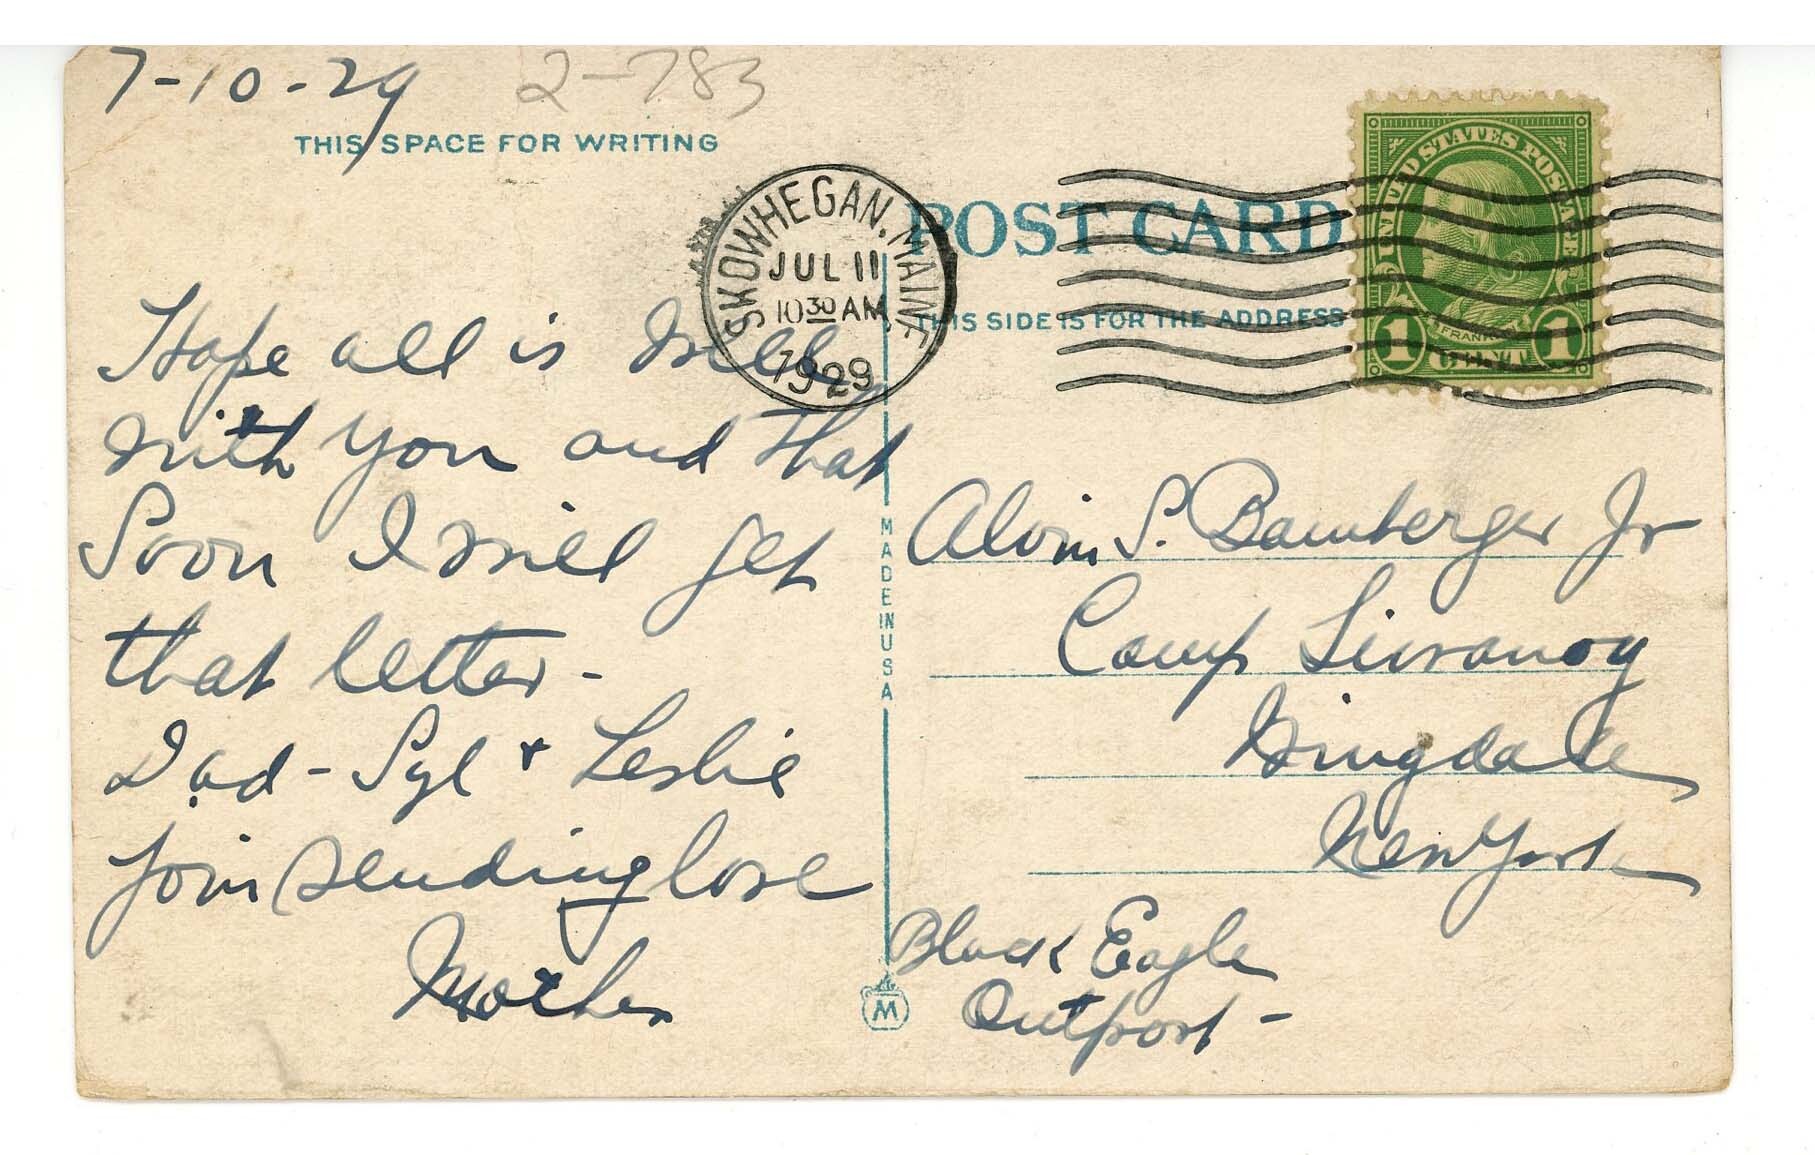 7-10-29
2-783
THIS SPACE FOR WRITING
Hope all is well
with you and that
Soon I will get
that letter -
Dad - Syl + Leslie
join sending love
Mother
SKOWHEGAN, MAINE
JUL 11
10 30 AM
1929
POST CARD
THIS SIDE IS FOR THE ADDRESS
UNITED STATES POSTAGE
FRANKLIN
1 CENT 1
MADE IN USA
Alvin S. Bamberger Jr
Camp Siwanoy
Wingdale
New York
Black Eagle
Outpost -
M